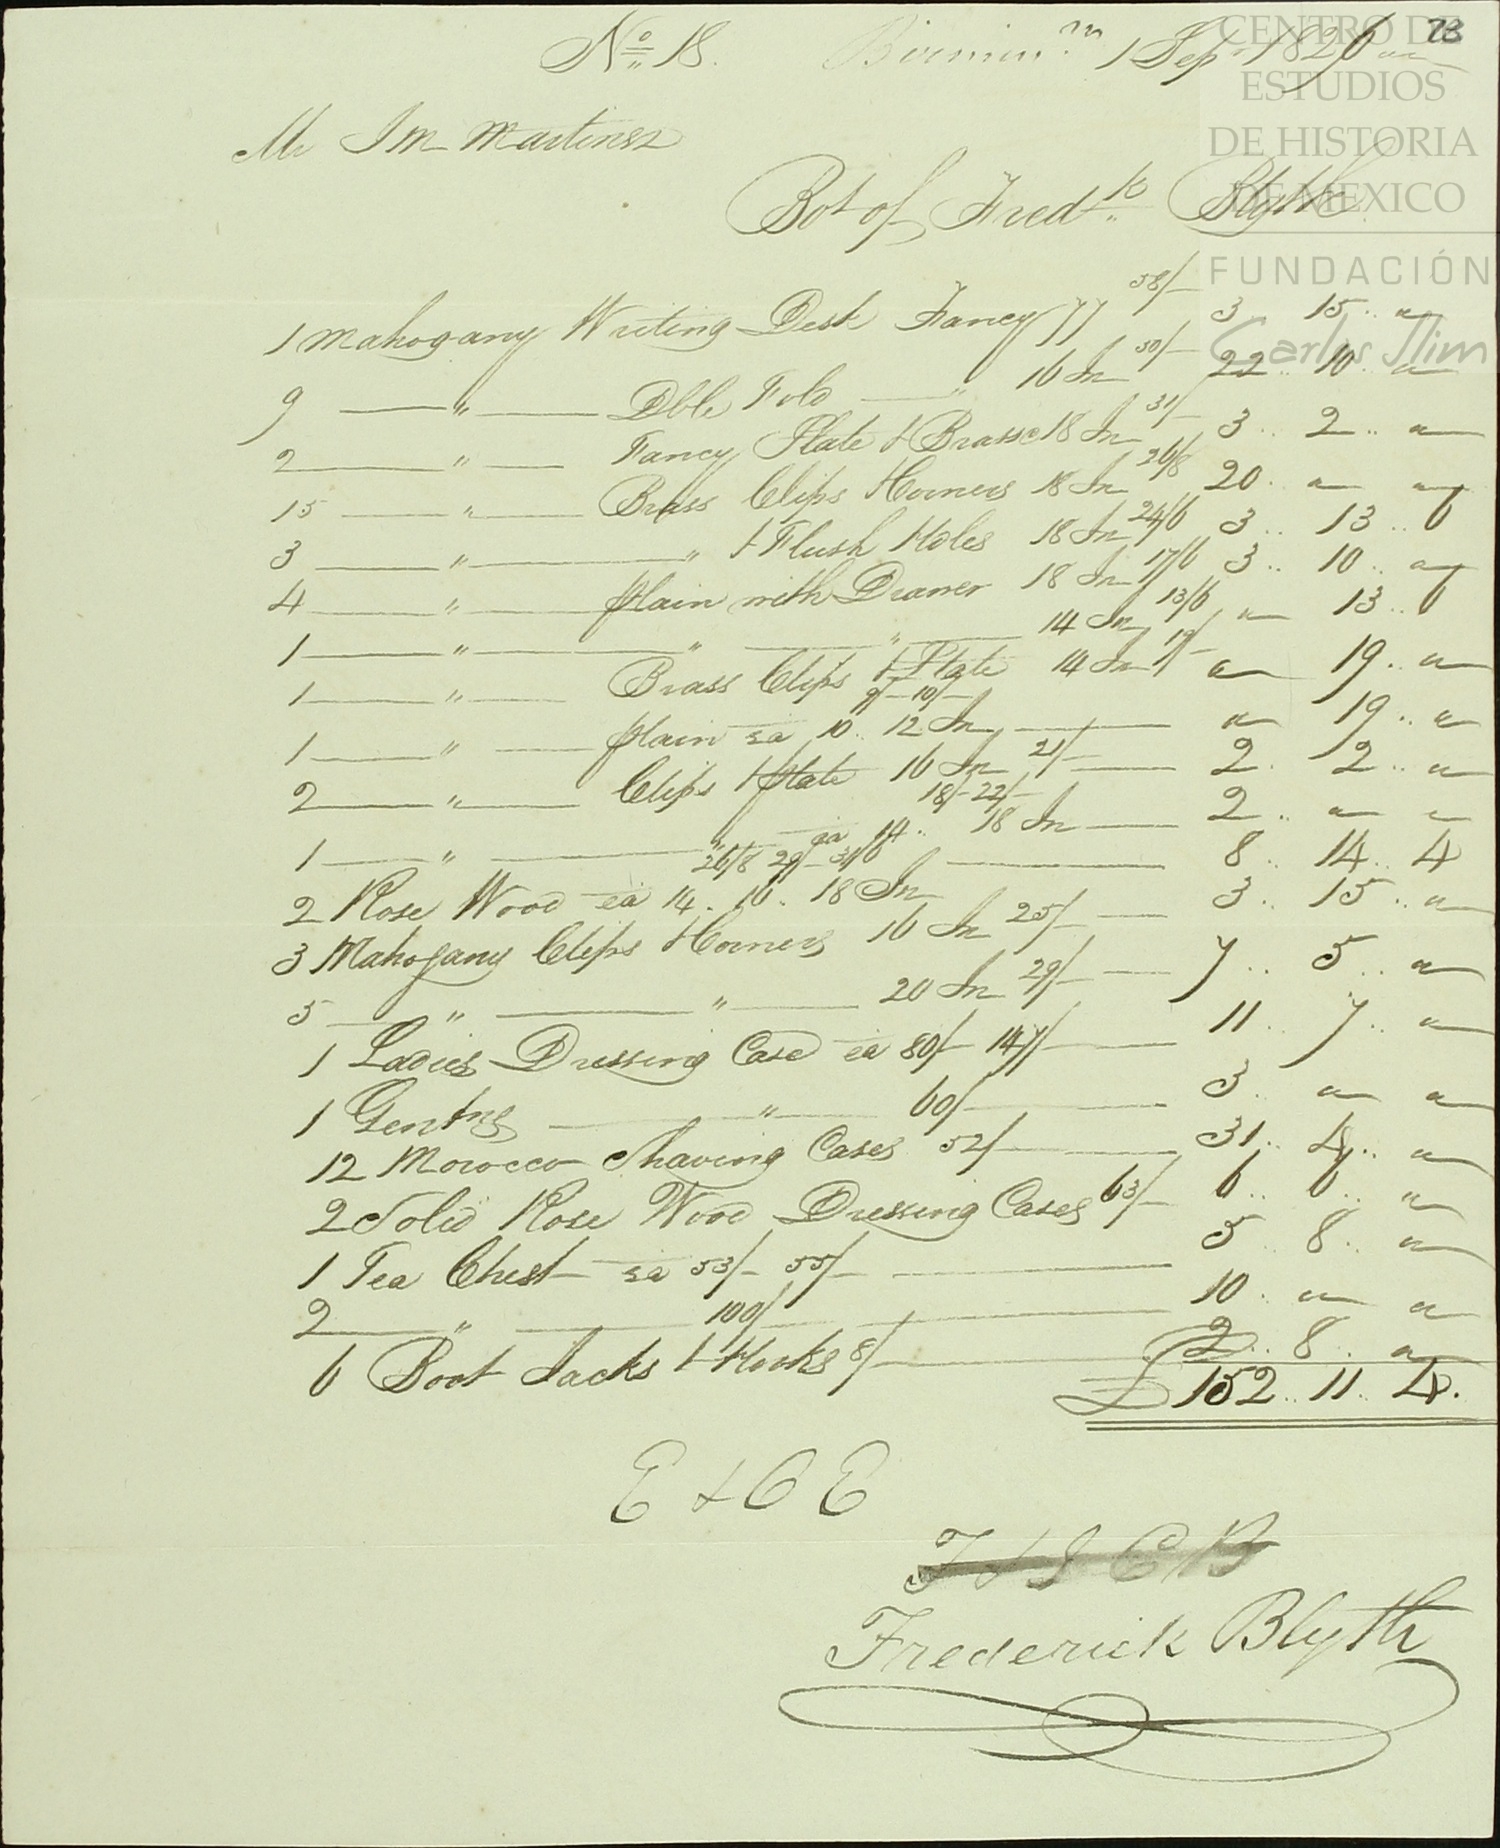 No 18. Birmin.m 1 Sepr 1826
73
Mr J M Martinez
Bot of Fredk Blyth
1 Mahogany Writing Desk Fancy 77 58/– 3 .. 15 .. "
9 —— " —— Dble Fold —— " 16 In 50/– 22 .. 10 .. "
2 —— " —— Fancy Plate & Brasse 18 In 31/– 3 .. 2 .. "
15 —— " —— Brass Clips Corners 18 In 26/8 20 .. " "
3 —— " —— " & Flush Holes 18 In 24/6 3 .. 13 .. 6
4 —— " —— plain with Drawer 18 In 17/6 3 .. 10 .. "
1 —— " —— " —— " —— 14 In 13/6 " 13 .. 6
1 —— " —— Brass Clips & Plate 14 In 19/– " 19 .. "
9/– 10/–
1 —— " —— plain ea 10 .. 12 In —— " 19 .. "
2 —— " —— Clips & plate 16 In 21/– —— 2 .. 2 .. "
18/– 22/–
1 —— " —— " —— ea 14 .. 18 In —— 2 .. " "
26/8 29/– 31/6
2 Rose Wood ea 14 . 16 . 18 In —— 8 .. 14 .. 4
3 Mahogany Clips Corners 16 In 25/– —— 3 .. 15 .. "
5 —— " —— " —— 20 In 29/– —— 7 .. 5 .. "
1 Ladies Dressing Case ea 80/– 147/– —— 11 .. 7 .. "
1 Gentns —— " —— 60/– —— 3 .. " "
12 Morocco Shaving Cases 52/– —— 31 .. 4 .. "
2 Solid Rose Wood Dressing Cases 63/– 6 .. 6 .. "
1 Tea Chest ea 53/– 55/– —— 5 .. 8 .. "
2 —— " —— 100/– —— 10 .. " "
6 Boot Jacks & Hooks 8/– —— 2 .. 8 .. "
£ 152 .. 11 .. 4.
E & O E
F & J C B
Frederick Blyth
CENTRO DE
ESTUDIOS
DE HISTORIA
DE MEXICO
FUNDACIÓN
Carlos Slim